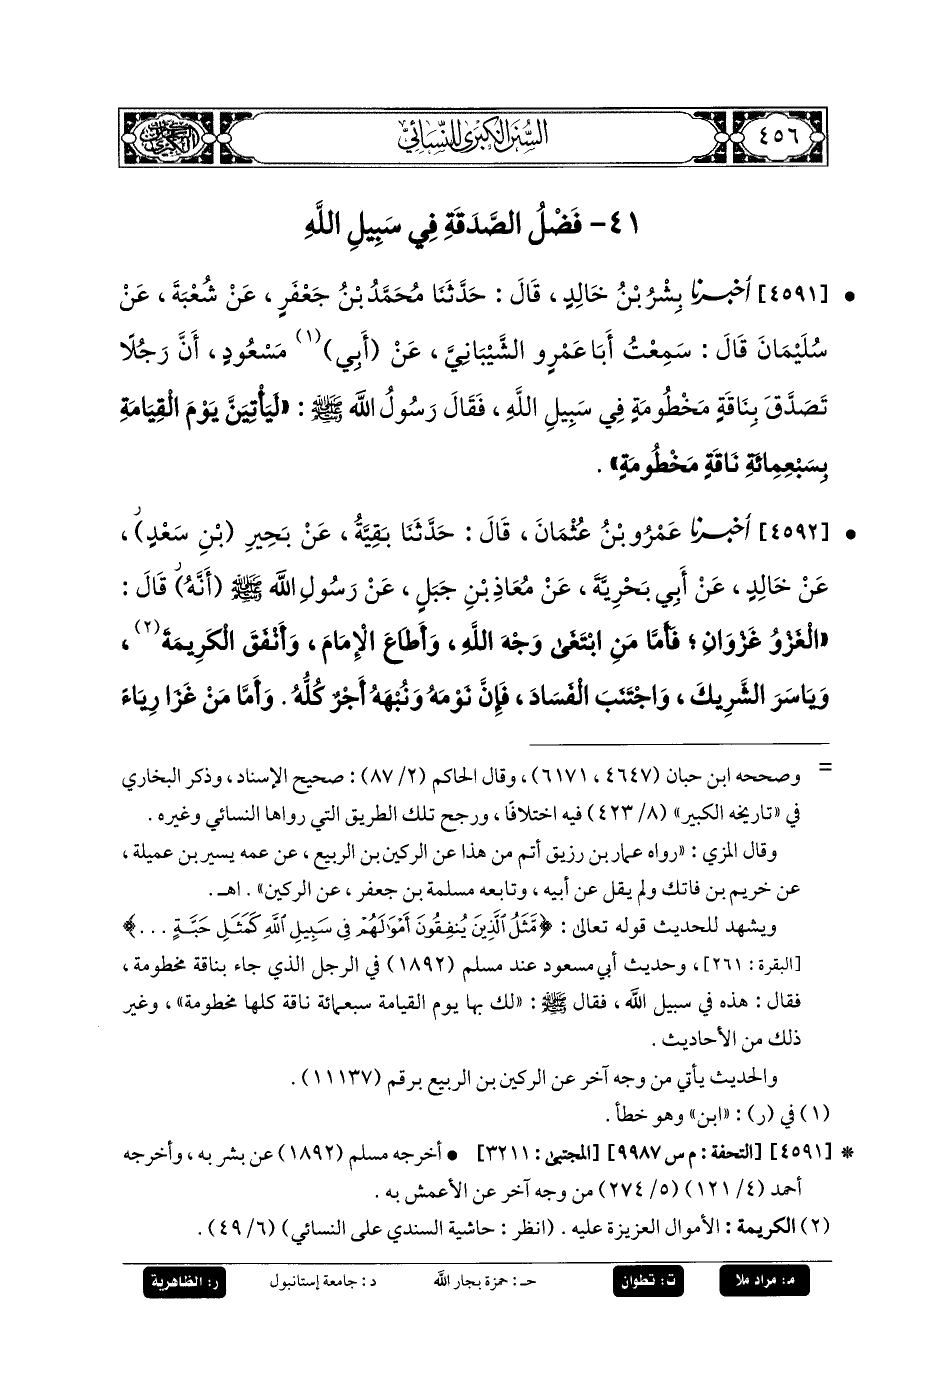 ٤٥٦
السنن الكبرى للنسائي
٤١- فَضْلُ الصَّدَقَةِ فِي سَبِيلِ اللَّهِ
• [٤٥٩١] أخبرنا بِشْرُ بْنُ خَالِدٍ، قَالَ: حَدَّثَنَا مُحَمَّدُ بْنُ جَعْفَرٍ، عَنْ شُعْبَةَ، عَنْ
سُلَيْمَانَ قَالَ: سَمِعْتُ أَبَا عَمْرٍو الشَّيْبَانِيَّ، عَنْ (أَبِي)(١) مَسْعُودٍ، أَنَّ رَجُلًا
تَصَدَّقَ بِنَاقَةٍ مَخْطُومَةٍ فِي سَبِيلِ اللَّهِ، فَقَالَ رَسُولُ اللَّه ﷺ: «لَيَأْتِيَنَّ يَوْمَ الْقِيَامَةِ
بِسَبْعِمِائَةِ نَاقَةٍ مَخْطُومَةٍ».
• [٤٥٩٢] أخبرنا عَمْرُو بْنُ عُثْمَانَ، قَالَ: حَدَّثَنَا بَقِيَّةُ، عَنْ بَحِيرِ (بْنِ سَعْدٍ)ر،
عَنْ خَالِدٍ، عَنْ أَبِي بَحْرِيَّةَ، عَنْ مُعَاذِ بْنِ جَبَلٍ، عَنْ رَسُولِ اللَّه ﷺ (أَنَّهُ)ر قَالَ:
«الْغَزْوُ غَزْوَانِ؛ فَأَمَّا مَنِ ابْتَغَىٰ وَجْهَ اللَّهِ، وَأَطَاعَ الْإِمَامَ، وَأَنْفَقَ الْكَرِيمَةَ(٢)،
وَيَاسَرَ الشَّرِيكَ، وَاجْتَنَبَ الْفَسَادَ، فَإِنَّ نَوْمَهُ وَنُبْهَهُ أَجْرٌ كُلُّهُ. وَأَمَّا مَنْ غَزَا رِيَاءً
= وصححه ابن حبان (٤٦٤٧، ٦١٧١)، وقال الحاكم (٢/ ٨٧): صحيح الإسناد، وذكر البخاري
في «تاريخه الكبير» (٨/ ٤٢٣) فيه اختلافًا، ورجح تلك الطريق التي رواها النسائي وغيره.
وقال المزي: «رواه عمار بن رزيق أتم من هذا عن الركين بن الربيع، عن عمه يسير بن عميلة،
عن خريم بن فاتك ولم يقل عن أبيه، وتابعه مسلمة بن جعفر، عن الركين». اهـ.
ويشهد للحديث قوله تعالى: ﴿مَّثَلُ ٱلَّذِينَ يُنفِقُونَ أَمْوَٰلَهُمْ فِى سَبِيلِ ٱللَّهِ كَمَثَلِ حَبَّةٍ ...﴾
[البقرة: ٢٦١]، وحديث أبي مسعود عند مسلم (١٨٩٢) في الرجل الذي جاء بناقة مخطومة،
فقال: هذه في سبيل اللَّه، فقال ﷺ: «لك بها يوم القيامة سبعمائة ناقة كلها مخطومة»، وغير
ذلك من الأحاديث.
والحديث يأتي من وجه آخر عن الركين بن الربيع برقم (١١١٣٧).
(١) في (ر): «ابن» وهو خطأ.
* [٤٥٩١] [التحفة: م س ٩٩٨٧] [المجتبى: ٣٢١١] • أخرجه مسلم (١٨٩٢) عن بشر به، وأخرجه
أحمد (٤/ ١٢١) (٥/ ٢٧٤) من وجه آخر عن الأعمش به.
(٢) الكريمة: الأموال العزيزة عليه. (انظر: حاشية السندي على النسائي) (٦/ ٤٩).
مـ: مراد ملا ت: تطوان حـ: حمزة بجار اللَّه د: جامعة إستانبول ر: الظاهرية